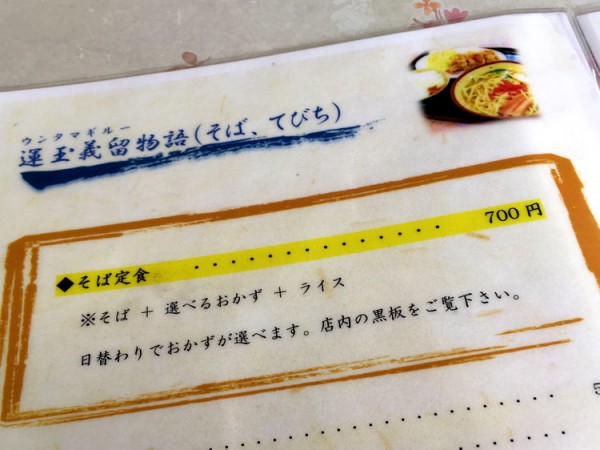 ウンタマギルー
運玉義留物語(そば、てびち)
◆そば定食 ・・・・・・・・・・・・・・ 700 円
※そば + 選べるおかず + ライス
日替わりでおかずが選べます。店内の黒板をご覧下さい。